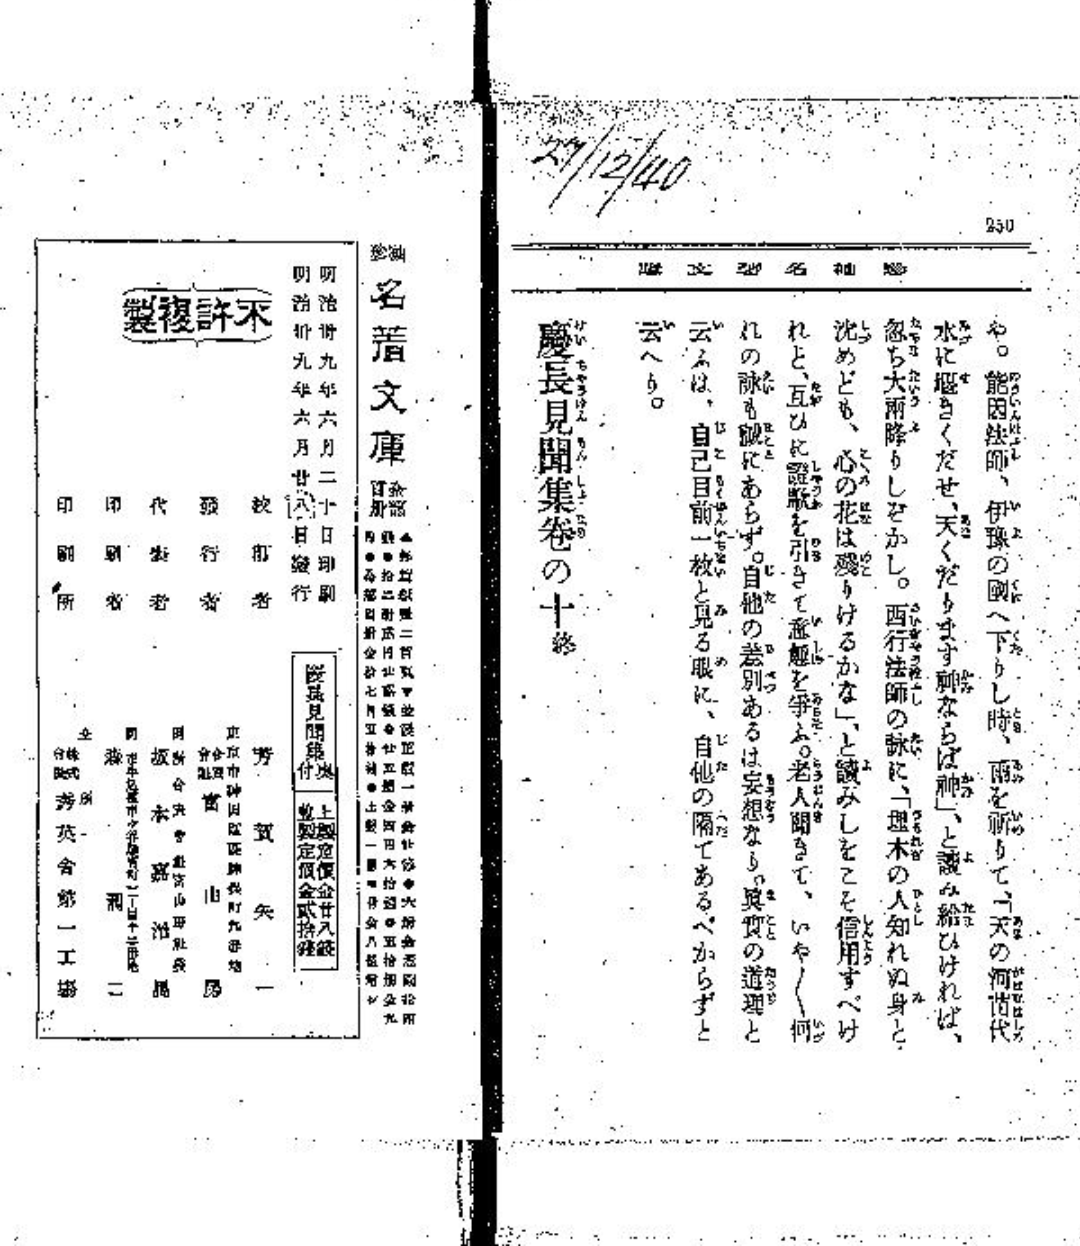 27/12/40
250
袖珍名著文庫
や。能因法師、伊豫の國へ下りし時、雨を祈りて、「天の河苗代
水に堰きくだせ、天くだります神ならば神」、と讀み給ひければ、
忽ち大雨降りしぞかし。西行法師の詠に、「埋木の人知れぬ身と
沈めども、心の花は殘りけるかな」、と讀みしをこそ信用すべけ
れと、互ひに證歌を引きて意趣を爭ふ。老人聞きて、いや〳〵何
れの詠も誠にあらず。自他の差別あるは妄想なり。眞實の道理と
云ふは、自己目前一枚と見る眼に、自他の隔てあるべからずと
云へり。
慶長見聞集卷の十終
袖珍 名著文庫
明治卅九年六月二十日印刷
明治卅九年六月廿八日發行
不許複製
慶長見聞集奧付
上製定價金廿八錢
並製定價金貳拾錢
校訂者 芳賀矢一
發行者 合資會社 冨山房
代表者 坂本嘉治馬
印刷者
印刷所 株式會社 秀英舍第一工場